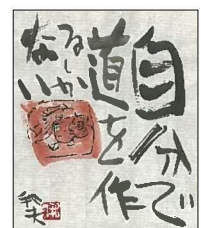 自分で
道を作
るしか
ない